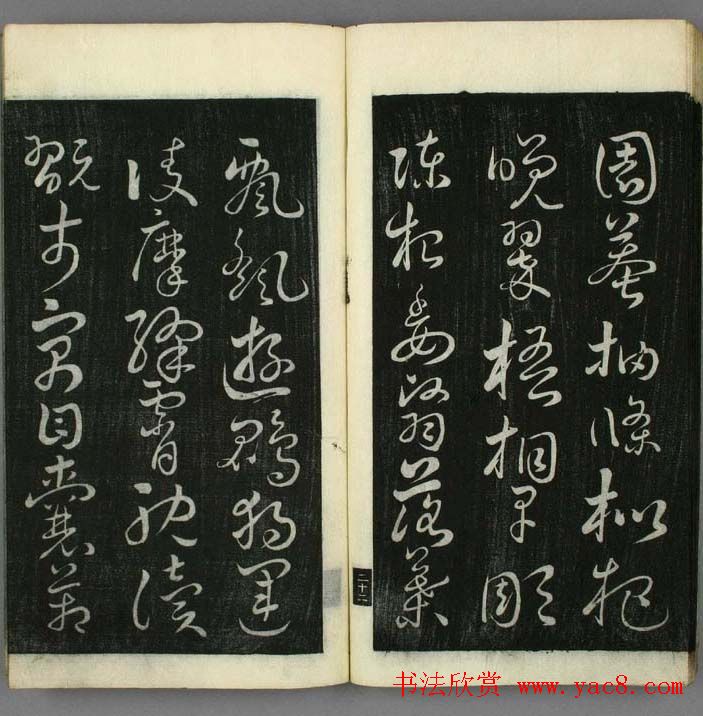 園莽抽條枇杷
晚翠梧桐早彫
陳根委翳落葉
二十二
飄颻遊鵾獨運
凌摩絳霄耽讀
翫市寓目囊箱
书法欣赏 www.yac8.com